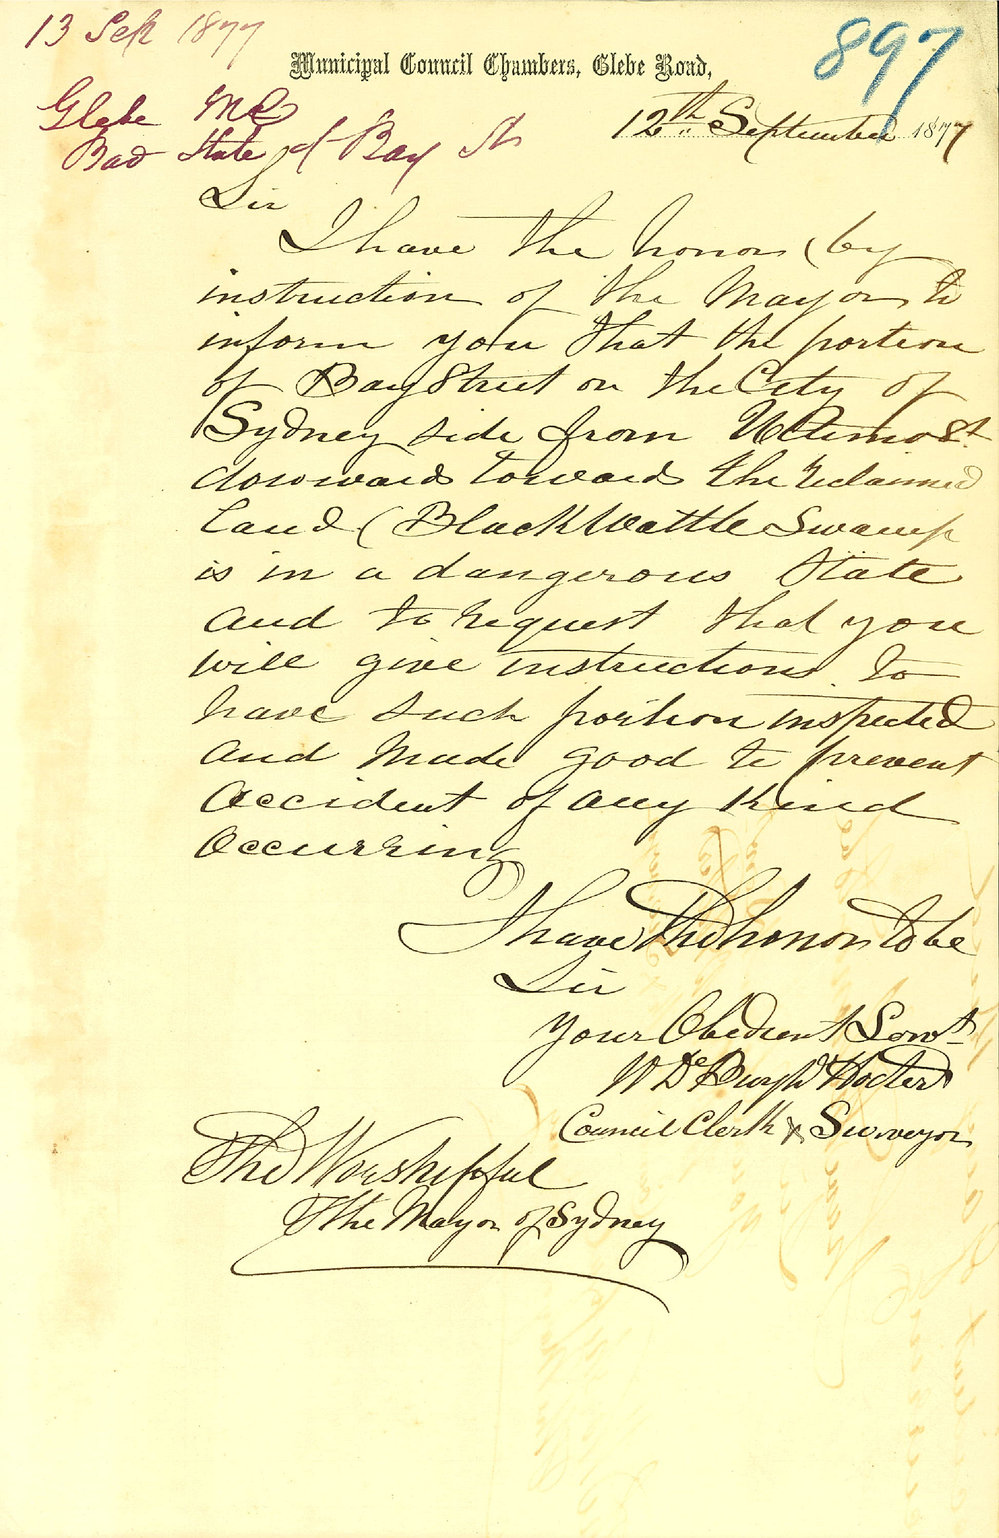 13 Sep 1877
897
Municipal Council Chambers, Glebe Road,
Glebe MC
12th September 1877
Bad State of Bay St
Sir
I have the honor (by
instruction of the Mayor to
inform you that the portion
of Bay Street on the City of
Sydney side from Ultimo St
downward towards the reclaimed
Land (Black Wattle Swamp
is in a dangerous State
and to request that you
will give instructions to
have such portion inspected
and made good to prevent
accident of any kind
occurring
I have the honor to be
Sir
Your Obedient Servt
Council Clerk & Surveyor
The Worshipful
The Mayor of Sydney